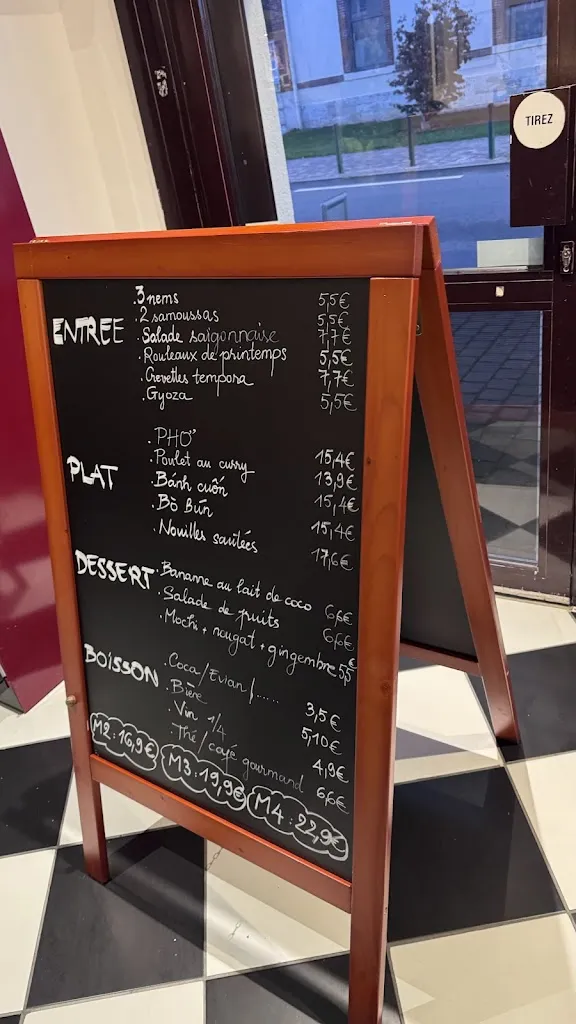 TIREZ
ENTREE
.3 nems 5,5€
.2 samoussas 5,5€
.Salade saïgonnaise 7,7€
.Rouleaux de printemps 5,5€
.Crevettes tempora 7,7€
.Gyoza 5,5€
PLAT
.PHO" 15,4€
.Poulet au curry 13,9€
.Bánh cuôń 15,4€
.Bò Bún 15,4€
.Nouilles sautées 17,6€
DESSERT
.Banane au lait de coco 6,6€
.Salade de fruits 6,6€
.Mochi + nougat + gingembre 5,5€
BOISSON
.Coca/Evian/..... 3,5€
.Bière 5,10€
.Vin 1/4 4,9€
.Thé/café gourmand 6,6€
M2: 16,9€ M3: 19,9€ M4: 22,9€